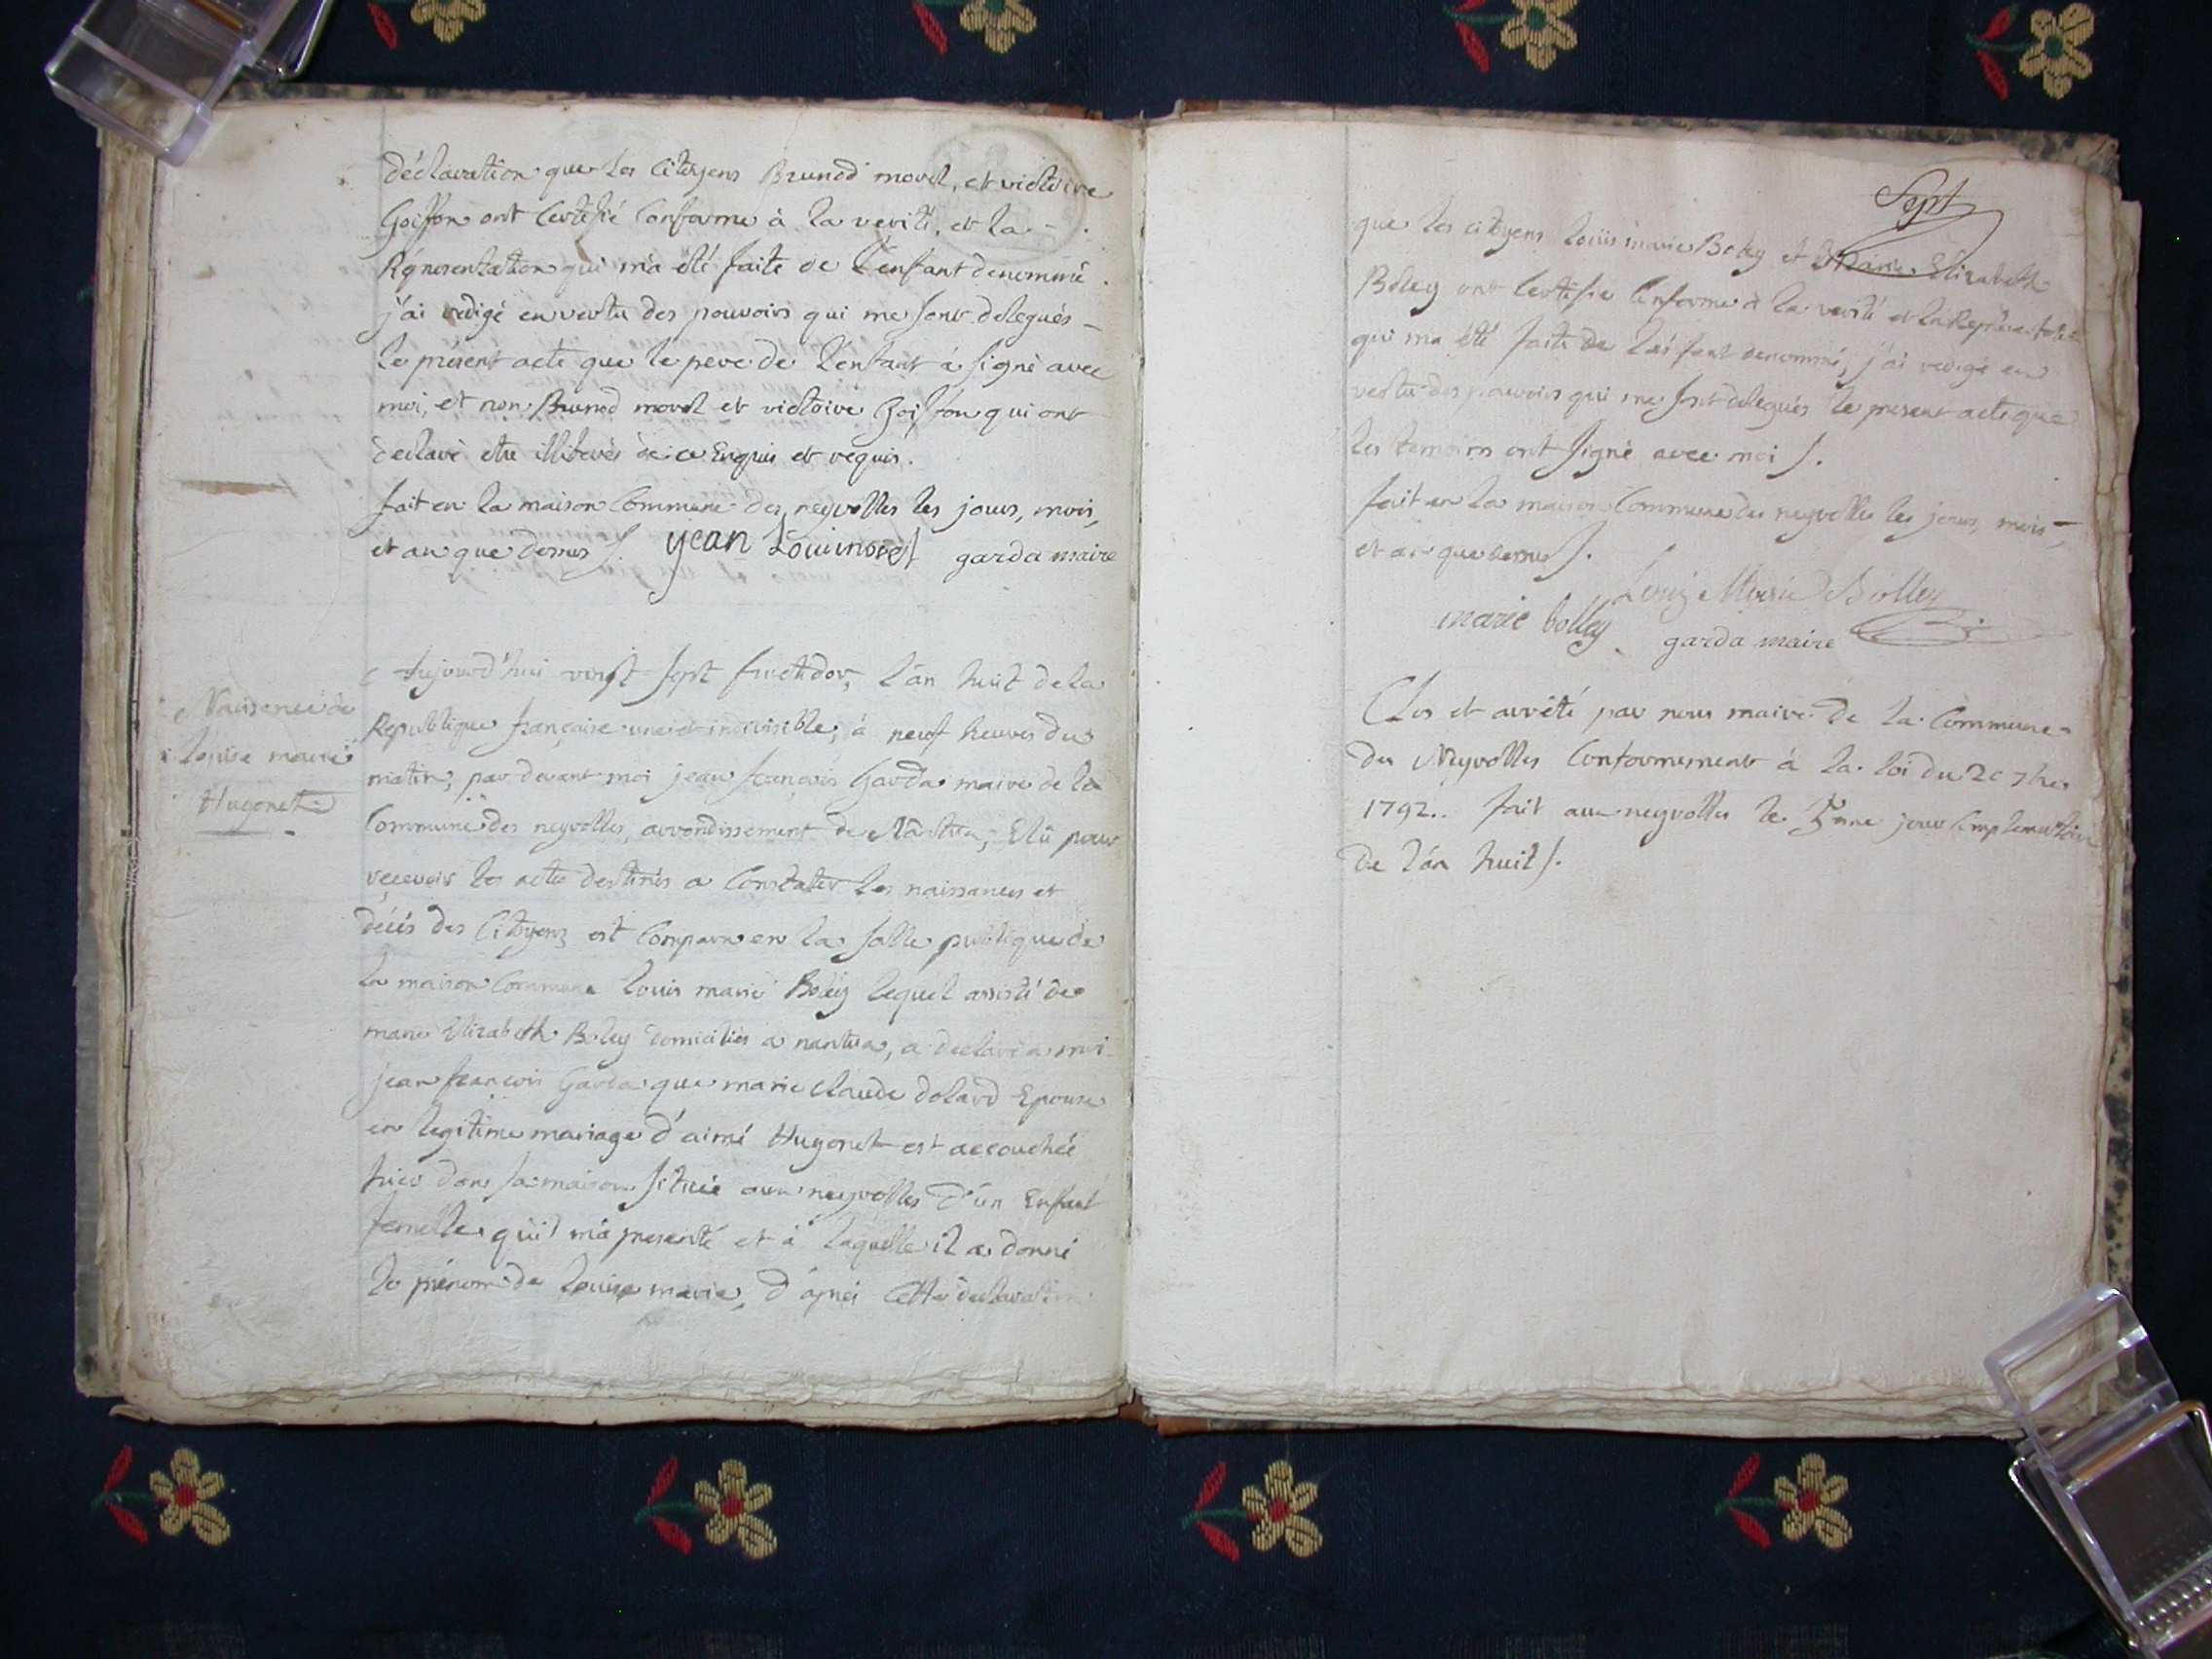 déclaration que les Citoyens Brunod morel, et victoire
Goiffon ont Certifié Conforme à la verité, et la -
Répresentation qui m'a été faite de l'enfant denommé
j'ai redigé en vertu des pouvoirs qui me sont delegués -
le présent acte que le pere de l'enfant à signé avec
moi, et non Brunod morel et victoire Goiffon qui ont
declaré etre illiterés de ce Enquis et requis.
fait en la maison Commune des neyrolles les jours, mois,
et an que dessus /. jean Loui morel garda maire
Naissence de
louise marie
Hugonet
Aujourd'hui vingt sept fructidor, l'an huit de la
Republique française une et indivisible, à neuf heures du
matin, par devant moi jean françois Garda maire de la
Commune des neyrolles, arrondissement de Nantua, Elû pour
reçevoir les actes destinés a Constater les naissances et
décés des Citoyens est Comparu en la salle publique de
la maison Commune louis marie Boley lequel assisté de
marie Elizabeth Boley domiciliés a nantua, a declaré a moi
jean françois Garda que marie claude dolard Epouse
en legitime mariage d'aimé Hugonet est accouchée
hier dans sa maison située aux neyrolles d'un Enfant
femelle qu'il m'a presenté et à laquelle il a donné
le prénom de louise marie, d'aprés cette declaration
Sept
que les citoyens louis marie Boley et Marie Elizabeth
Boley ont Certifie Conforme à la verité et la Représentation
qui ma été faite de l'enfant denommé, j'ai redigé en
vertu des pouvoirs qui me sont delegués le present acte que
les temoins ont signé avec moi /.
fait en la maison Commune des neyrolles les jours, mois,
et an que dessus /.
Louis Marie Bolley
marie bolley garda maire
Clos et arrété par nous maire de la Commune
des Neyrolles Conformement à la loi du 20 7bre
1792.. fait aux neyrolles le 5eme jour Complementaire
de l'an huit /.